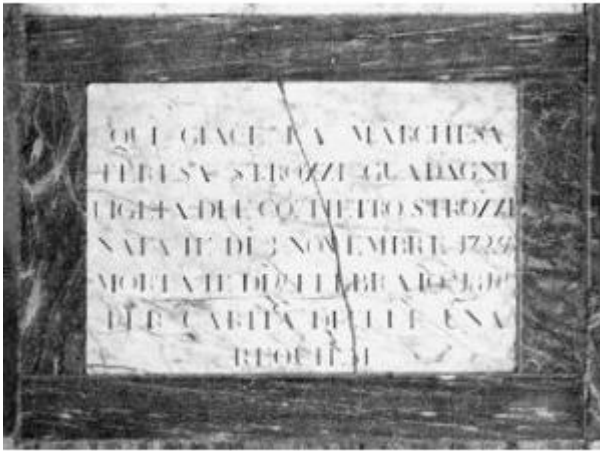 QUI GIACE LA MARCHESA
TERESA STROZZI GUADAGNI
FIGLIA DEL CO. PIETRO STROZZI
NATA IL DI 3 NOVEMBRE
MORTA IL DI FEBBRAIO
PER CARITÀ DITELE UNA
REQUIEM